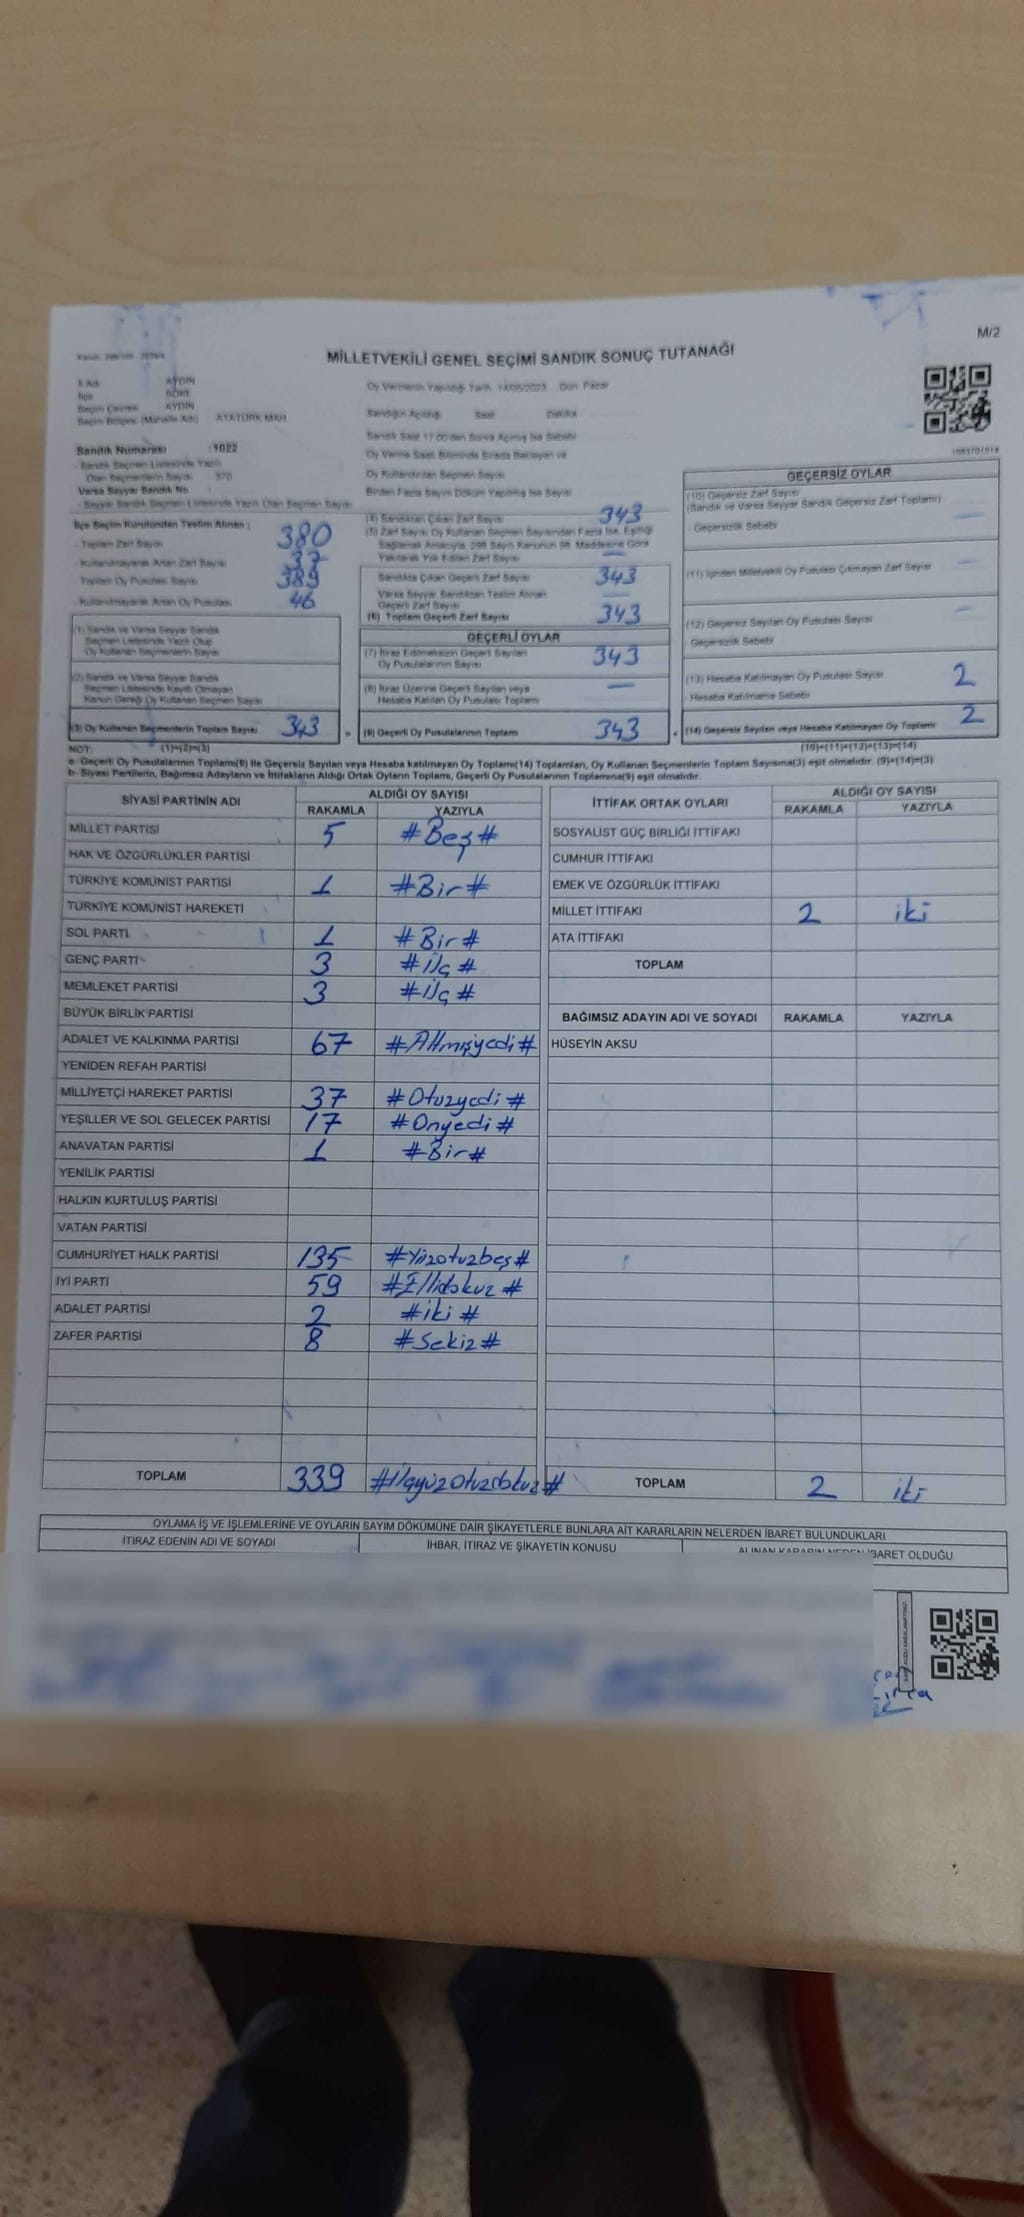 M/2
MİLLETVEKİLİ GENEL SEÇİMİ SANDIK SONUÇ TUTANAĞI
İl Adı AYDIN
İlçe
Seçim Çevresi AYDIN
Seçim Bölgesi (Mahalle Adı) ATATÜRK MAH
Sandık Numarası 1022
- Sandık Seçmen Listesinde Yazılı
Olan Seçmenlerin Sayısı 370
Varsa Seyyar Sandık No
- Seyyar Sandık Seçmen Listesinde Yazılı Olan Seçmen Sayısı
İlçe Seçim Kurulundan Teslim Alınan ;
- Toplam Zarf Sayısı 380
- Kullanılmayarak Artan Zarf Sayısı 37
- Toplam Oy Pusulası Sayısı 389
- Kullanılmayarak Artan Oy Pusulası 46
(1) Sandık ve Varsa Seyyar Sandık
Seçmen Listesinde Yazılı Olup
Oy Kullanan Seçmenlerin Sayısı
(2) Sandık ve Varsa Seyyar Sandık
Seçmen Listesinde Kayıtlı Olmayan
Kanun Gereği Oy Kullanan Seçmen Sayısı
(3) Oy Kullanan Seçmenlerin Toplam Sayısı 343
Oy Vermenin Yapıldığı Tarih 14/05/2023 Gün Pazar
Sandığın Açıldığı Saat Dakika
Sandık Saat 17.00'den Sonra Açılmış İse Sebebi
Oy Verme Saati Bitiminde Sırada Bekleyen ve
Oy Kullandırılan Seçmen Sayısı
Birden Fazla Sayım Döküm Yapılmış İse Sayısı
(4) Sandıktan Çıkan Zarf Sayısı 343
(5) Zarf Sayısı Oy Kullanan Seçmen Sayısından Fazla İse, Eşitliği
Sağlamak Amacıyla, 298 Sayılı Kanunun 98. Maddesine Göre
Yakılarak Yok Edilen Zarf Sayısı —
Sandıkta Çıkan Geçerli Zarf Sayısı 343
Varsa Seyyar Sandıktan Teslim Alınan
Geçerli Zarf Sayısı —
(6) Toplam Geçerli Zarf Sayısı 343
GEÇERLİ OYLAR
(7) İtiraz Edilmeksizin Geçerli Sayılan
Oy Pusulalarının Sayısı 343
(8) İtiraz Üzerine Geçerli Sayılan veya
Hesaba Katılan Oy Pusulası Toplamı —
(9) Geçerli Oy Pusulalarının Toplamı 343
GEÇERSİZ OYLAR
(10) Geçersiz Zarf Sayısı
(Sandık ve Varsa Seyyar Sandık Geçersiz Zarf Toplamı) —
- Geçersizlik Sebebi
(11) İçinden Milletvekili Oy Pusulası Çıkmayan Zarf Sayısı —
(12) Geçersiz Sayılan Oy Pusulası Sayısı —
- Geçersizlik Sebebi
(13) Hesaba Katılmayan Oy Pusulası Sayısı 2
- Hesaba Katılmama Sebebi
(14) Geçersiz Sayılan veya Hesaba Katılmayan Oy Toplamı 2
NOT: (1)+(2)=(3) (10)+(11)+(12)+(13)=(14)
a- Geçerli Oy Pusulalarının Toplamı(9) ile Geçersiz Sayılan veya Hesaba katılmayan Oy Toplamı(14) Toplamları, Oy Kullanan Seçmenlerin Toplam Sayısına(3) eşit olmalıdır. (9)+(14)=(3)
b- Siyasi Partilerin, Bağımsız Adayların ve İttifakların Aldığı Ortak Oyların Toplamı, Geçerli Oy Pusulalarının Toplamına(9) eşit olmalıdır.
SİYASİ PARTİNİN ADI ALDIĞI OY SAYISI
RAKAMLA YAZIYLA
MİLLET PARTİSİ 5 #Beş#
HAK VE ÖZGÜRLÜKLER PARTİSİ
TÜRKİYE KOMÜNİST PARTİSİ 1 #Bir#
TÜRKİYE KOMÜNİST HAREKETİ
SOL PARTİ 1 #Bir#
GENÇ PARTİ 3 #Üç#
MEMLEKET PARTİSİ 3 #Üç#
BÜYÜK BİRLİK PARTİSİ
ADALET VE KALKINMA PARTİSİ 67 #Altmışyedi#
YENİDEN REFAH PARTİSİ
MİLLİYETÇİ HAREKET PARTİSİ 37 #Otuzyedi#
YEŞİLLER VE SOL GELECEK PARTİSİ 17 #Onyedi#
ANAVATAN PARTİSİ 1 #Bir#
YENİLİK PARTİSİ
HALKIN KURTULUŞ PARTİSİ
VATAN PARTİSİ
CUMHURİYET HALK PARTİSİ 135 #Yüzotuzbeş#
İYİ PARTİ 59 #Ellidokuz#
ADALET PARTİSİ 2 #iki#
ZAFER PARTİSİ 8 #Sekiz#
TOPLAM 339 #Üçyüzotuzdokuz#
İTTİFAK ORTAK OYLARI ALDIĞI OY SAYISI
RAKAMLA YAZIYLA
SOSYALİST GÜÇ BİRLİĞİ İTTİFAKI
CUMHUR İTTİFAKI
EMEK VE ÖZGÜRLÜK İTTİFAKI
MİLLET İTTİFAKI 2 iki
ATA İTTİFAKI
TOPLAM
BAĞIMSIZ ADAYIN ADI VE SOYADI RAKAMLA YAZIYLA
HÜSEYİN AKSU
TOPLAM 2 iki
OYLAMA İŞ VE İŞLEMLERİNE VE OYLARIN SAYIM DÖKÜMÜNE DAİR ŞİKAYETLERLE BUNLARA AİT KARARLARIN NELERDEN İBARET BULUNDUKLARI
İTİRAZ EDENİN ADI VE SOYADI İHBAR, İTİRAZ VE ŞİKAYETİN KONUSU ALINAN KARARIN NEDEN İBARET OLDUĞU